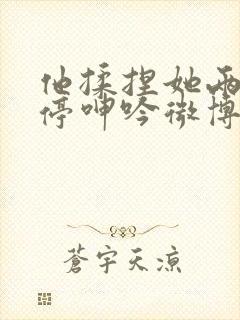 他揉捏她两
停呻吟微博
蒼宇天涼